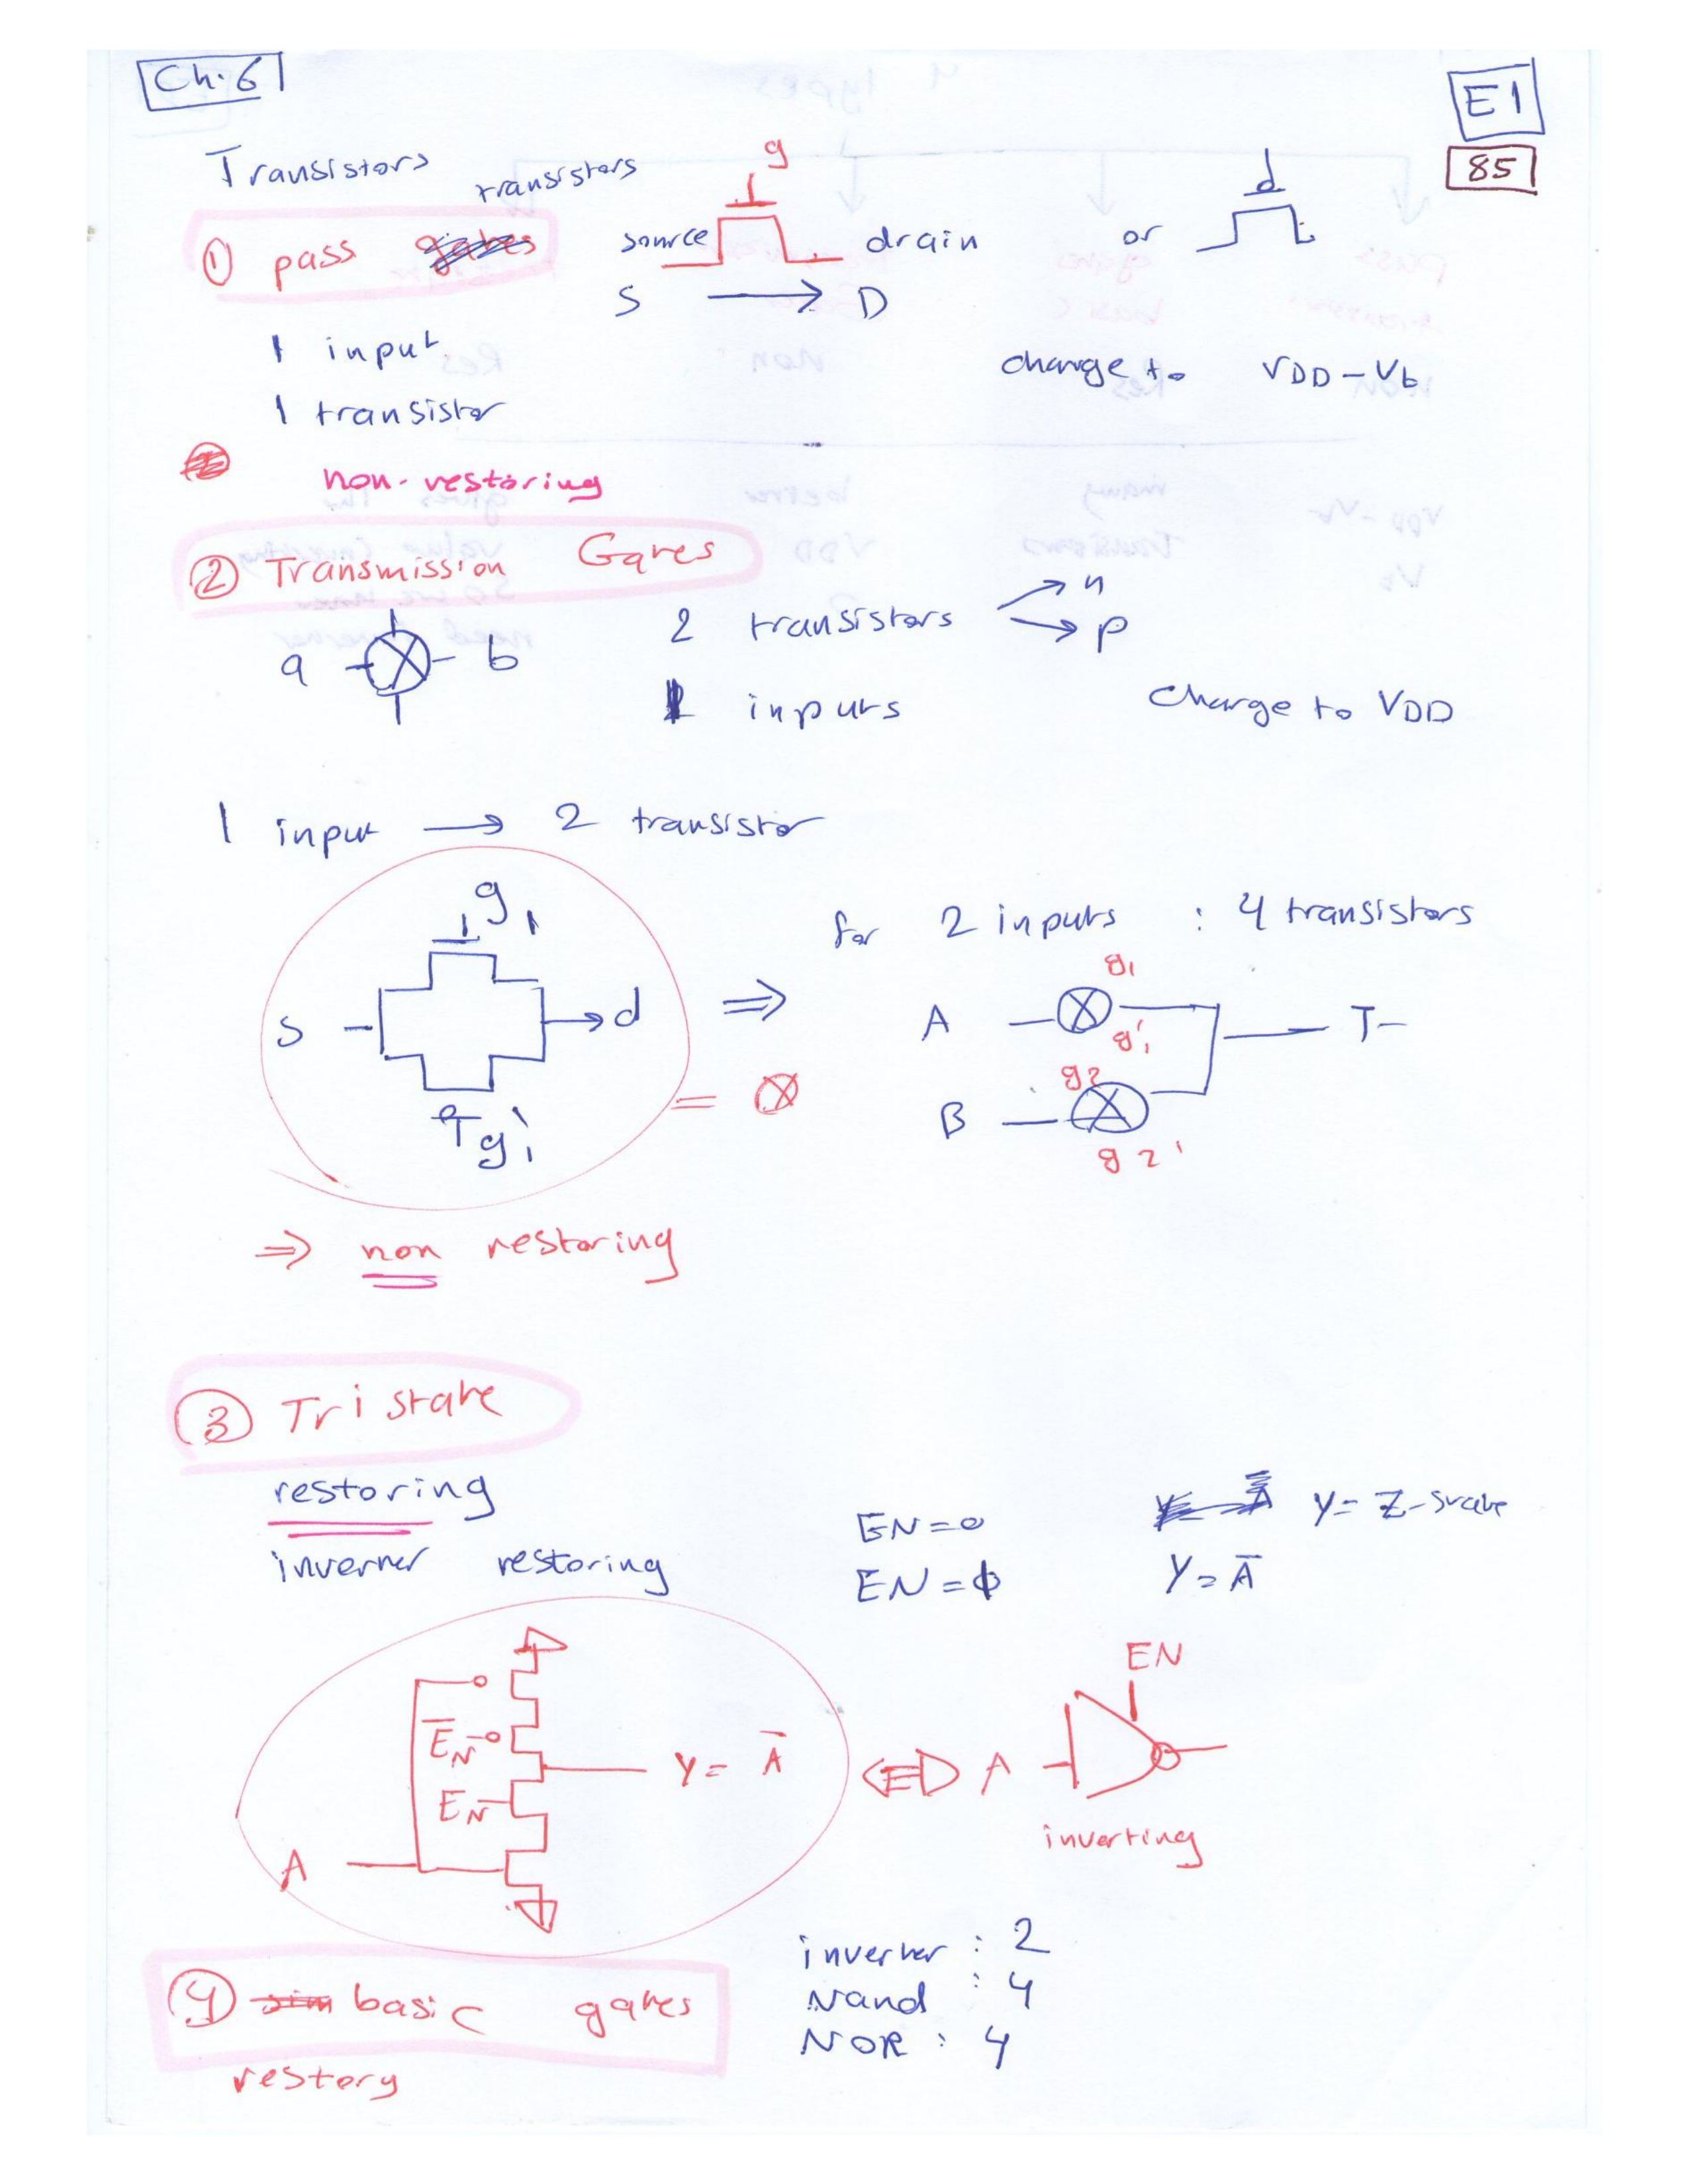 Ch.6
E1
85
Transistors
transistors
① pass
g
source drain
or
S → D
1 input
1 transistor
change to VDD-Vt
non-restoring
② Transmission Gates
a b
2 transistors n
p
inputs
Charge to VDD
1 input → 2 transistor
g1
s d
g1'
⇒
for 2 inputs : 4 transistors
A g1
g1'
T-
= ⊗
B g2
g2'
⇒ non restoring
③ Tristate
restoring
inverter restoring
EN=0 Y= Z-state
EN=1 Y=A̅
E̅N̅
EN
Y= A̅
A
EN
A
inverting
④ basic gates
restory
inverter : 2
Nand : 4
NOR : 4